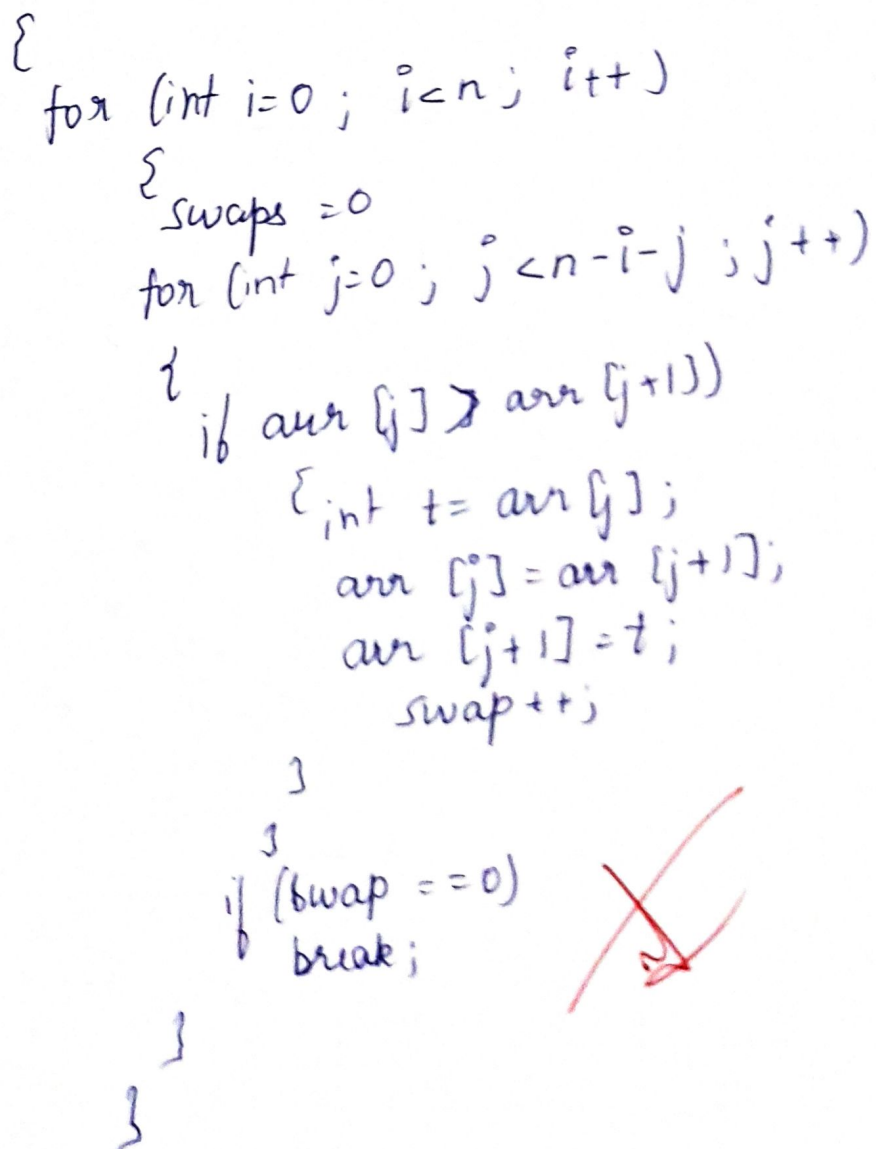 {
for (int i=0 ; i<n ; i++)
{
swaps =0
for (int j=0 ; j<n-i-j ; j++)
{
if arr [j] > arr [j+1])
{ int t= arr [j] ;
arr [j] = arr [j+1];
arr [j+1] = t ;
swap ++;
}
}
if (swap ==0)
break ;
}
}